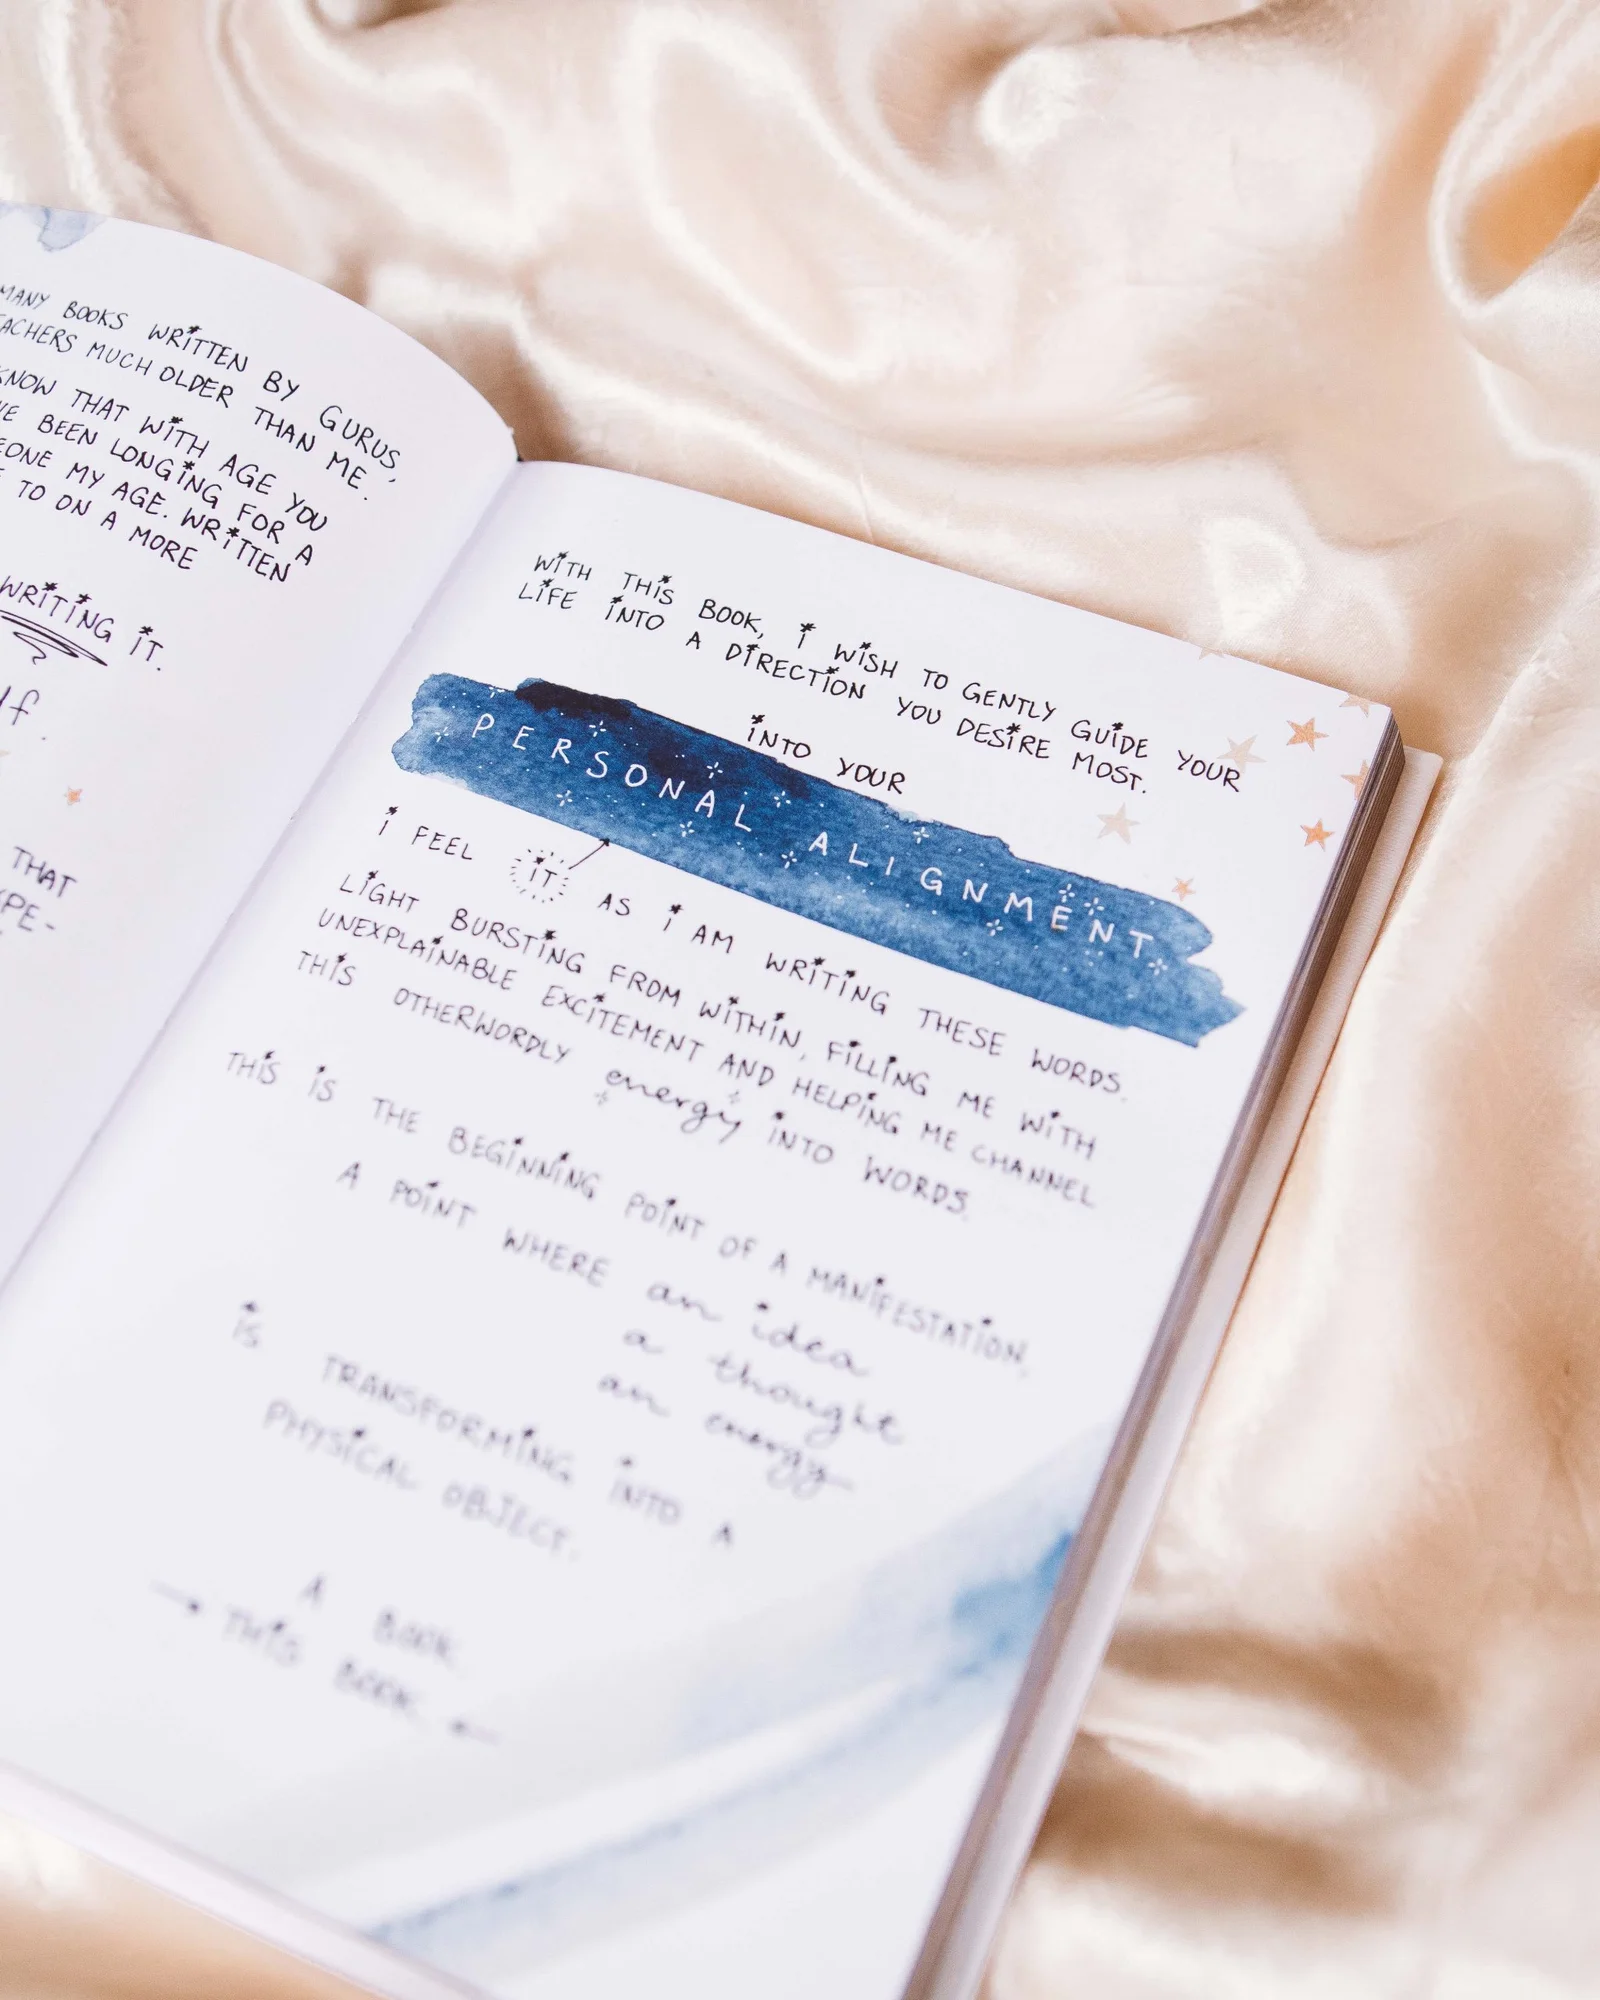 MANY BOOKS WRITTEN BY GURUS,
TEACHERS MUCH OLDER THAN ME.
KNOW THAT WITH AGE YOU
BEEN LONGING FOR A
MY AGE. WRITTEN
TO ON A MORE
WRITING IT.
THAT
WITH THIS BOOK, I WISH TO GENTLY GUIDE YOUR
LIFE INTO A DIRECTION YOU DESIRE MOST.
INTO YOUR
PERSONAL ALIGNMENT
I FEEL IT AS I AM WRITING THESE WORDS.
LIGHT BURSTING FROM WITHIN, FILLING ME WITH
UNEXPLAINABLE EXCITEMENT AND HELPING ME CHANNEL
THIS OTHERWORDLY energy INTO WORDS.
THIS IS THE BEGINNING POINT OF A MANIFESTATION,
A POINT WHERE an idea
a thought
an energy
IS TRANSFORMING INTO A
PHYSICAL OBJECT.
A BOOK
→ THIS BOOK ←